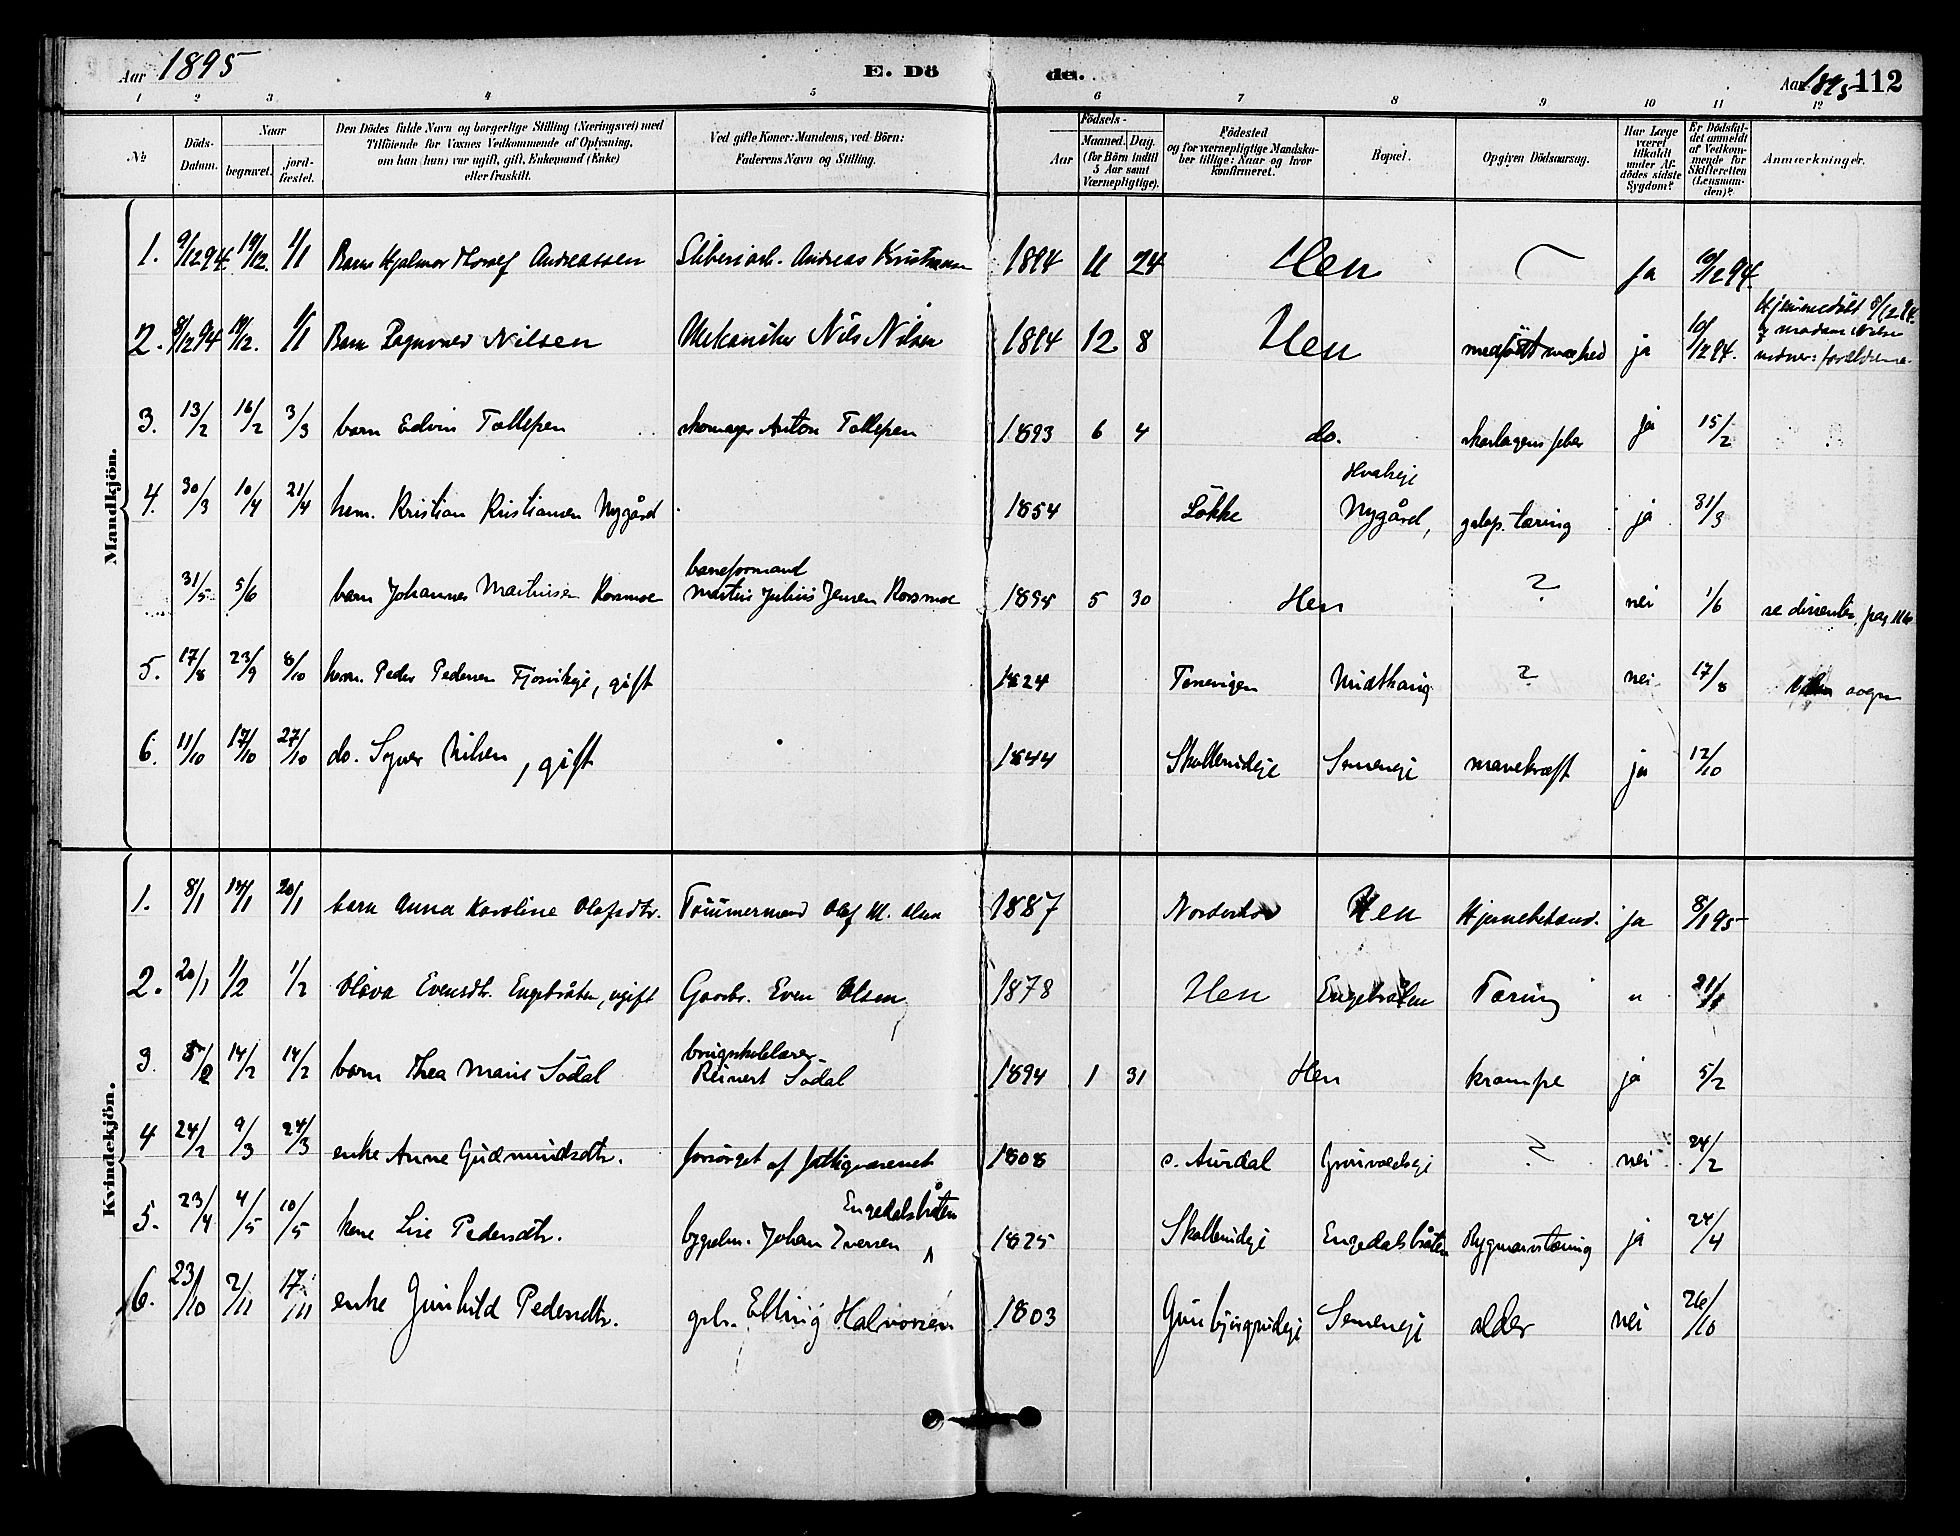 Aar 1895 E. Dö de. Aar 1895 112
1 2 3 4 5 6 7 8 9 10 11 12
No
Döds-Datum.
Naar
begravet.
jord-fæstet.
Den Dödes fulde Navn og borgerlige Stilling (Næringsvei) med
Tilföiende for Voxnes Vedkommende af Oplysning,
om han (hun) var ugift, gift, Enkemand (Enke)
eller fraskilt.
Ved gifte Koner: Mandens, ved Börn:
Faderens Navn og Stilling.
Födsels-
Aar
Maaned. Dag.
(for Börn indtil
5 Aar samt
Værnepligtige).
Födested
og for værnepligtige Mandska-
ber tillige: Naar og hvor
konfirmeret.
Bopæl.
Opgiven Dödsaarsag.
Har Læge
været
tilkaldt
under Af-
dödes sidste
Sygdom?
Er Dödsfal-
det anmeldt
af Vedkom-
mende for
Skifteretten
(Lensman-
den)?
Anmærkninger.
Mandkjön.
1. 9/12 94. 19/12. 1/1 Barn Hjalmar Thoralf Andreassen Sliberiarb. Andreas Kristiansen 1894 11 24 Hen ja 10/12 94.
2. 8/12 94 19/12. 1/1 Barn Ragnvald Nilsen Mekaniker Nils Nilsen 1894 12 8 Hen medfödt svaghed ja 10/12 94. Hjemmedöbt 8/12 94.
af madam Nilsen
vidner: forældrene.
3. 13/2 16/2 3/3 barn Edvin Tollefsen skomager Anton Tollefsen 1893 6 4 do. skarlagensfeber ja 15/2
4. 30/3 10/4 21/4 hem. Kristian Kristiansen Nygård 1854 Løkke Nygård, galop. tæring ja 31/3
31/5 5/6 barn Johannes Martinsen Korsmoe baneformand
Martin Julius Jensen Korsmoe 1895 5 30 Hen ? nei 1/6 se dissenter, pag
5. 17/8 23/9 8/10 Peder Pedersen gift 1824 ? nei 17/8 sogn
6. 11/10 17/10 27/10 do. Syver Nilsen, gift 1844 Skollerudeje Semeneje mavekræft ja 12/10
Kvindekjön.
1. 8/1 14/1 20/1 barn Anna Karoline Olafsdtr. Tömmermand Olaf M. Olsen 1887 Norderhov Hen Hjernebetænd. ja 8/1 95
2. 20/1 1/2 1/2 Olava Evensdtr. Engebråten, ugift Gaardbr. Even Olsen 1878 Hen Engebråten Tæring " 21/1
3. 5/2 14/2 14/2 barn Thea Marie Södal brugsskolelærer
Reinert Södal 1894 1 31 Hen krampe ja 5/2
4 24/2 9/3 24/3 enke Anne Gudmundsdtr. forsörget af fattigvæsenet 1808 s. Aurdal ? nei 24/2
5. 23/4 4/5 10/5 kone Lise Pedersdtr. Engedalsbråten
bygselm. Johan Iversen 1825 Skollerudeje Engedalsbråten Rygmarvstæring ja 24/4
6. 23/10 2/11 17/11 enke Gunhild Pedersdtr. grb. Elling Halvorsen 1803 Semeneje alder nei 26/10